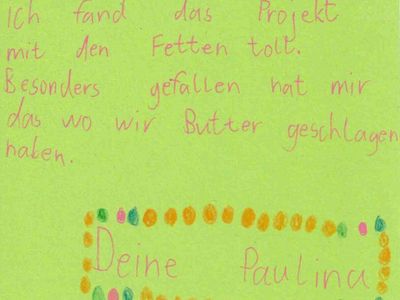 Ich fand das Projekt
mit den Fetten tolt.
Besonders gefallen hat mir
das wo wir Butter geschlagen
haben.
Deine Paulina